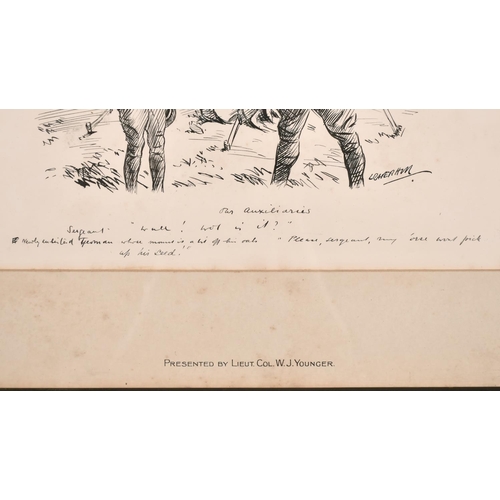 Our Auxiliaries
Sergeant "Well! Wot is it?"
Newly enlisted Yeoman whose mount is a bit off his oats "Please, sergeant, my 'orse wont pick
up his seed."
PRESENTED BY LIEUT. COL. W. J. YOUNGER.